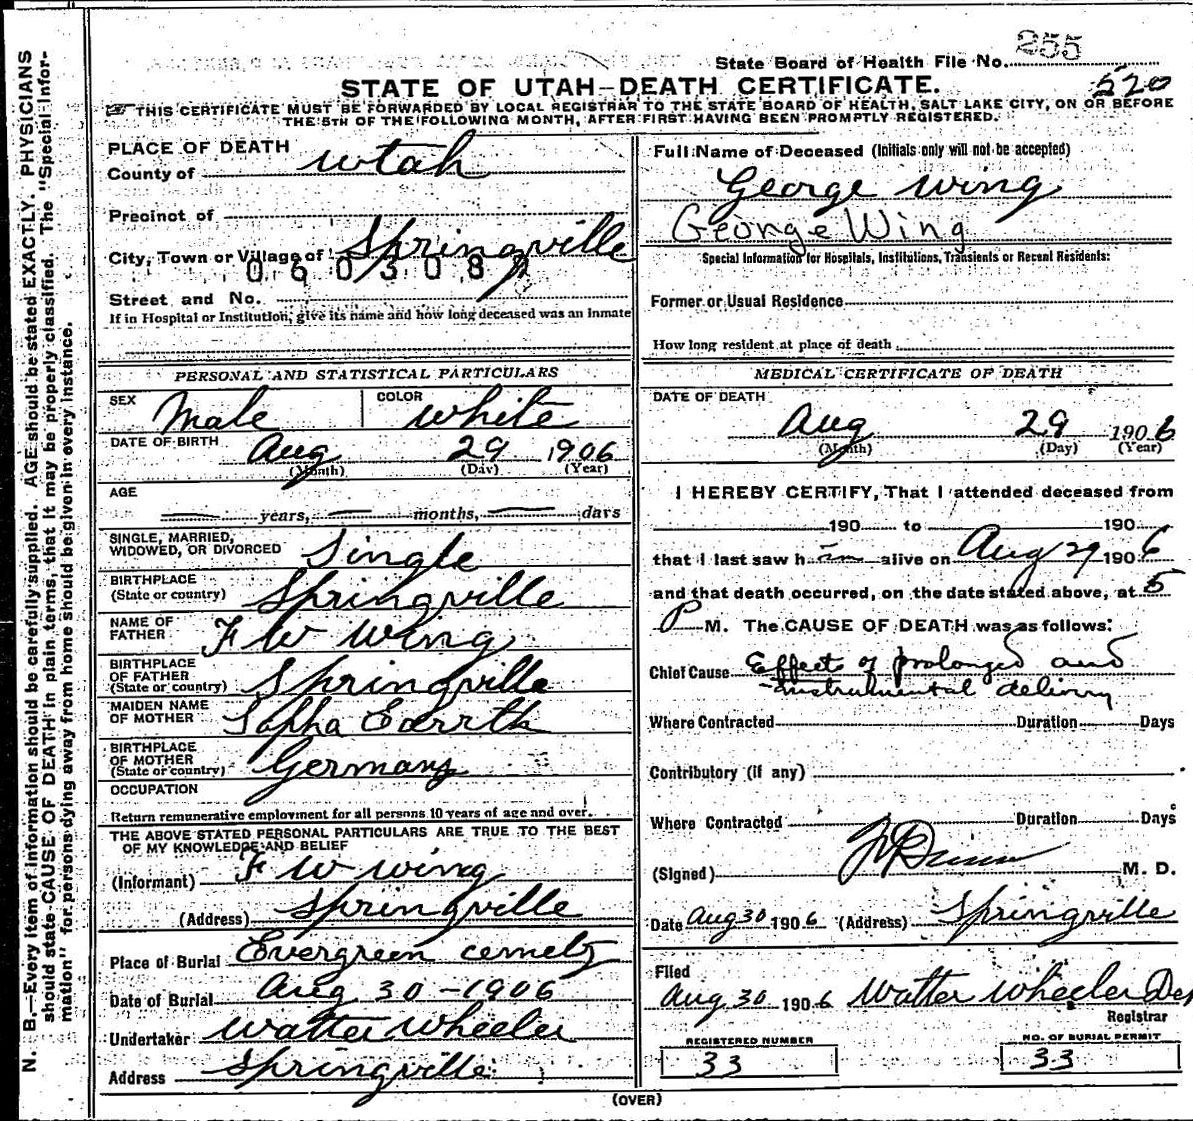 State Board of Health File No. 255
STATE OF UTAH–DEATH CERTIFICATE.
520
THIS CERTIFICATE MUST BE FORWARDED BY LOCAL REGISTRAR TO THE STATE BOARD OF HEALTH, SALT LAKE CITY, ON OR BEFORE
THE 5TH OF THE FOLLOWING MONTH, AFTER FIRST HAVING BEEN PROMPTLY REGISTERED.
N. B.—Every item of information should be carefully supplied. AGE should be stated EXACTLY. PHYSICIANS
should state CAUSE OF DEATH in plain terms, that it may be properly classified. The "Special Infor-
mation" for persons dying away from home should be given in every instance.
PLACE OF DEATH
County of Utah
Precinct of
City, Town or Village of Springville
0603087
Street and No.
If in Hospital or Institution, give its name and how long deceased was an inmate
PERSONAL AND STATISTICAL PARTICULARS
SEX Male COLOR white
DATE OF BIRTH Aug 29 1906
(Month) (Day) (Year)
AGE
— years, — months, — days
SINGLE, MARRIED,
WIDOWED, OR DIVORCED Single
BIRTHPLACE
(State or country) Springville
NAME OF
FATHER F W Wing
BIRTHPLACE
OF FATHER
(State or country) Springville
MAIDEN NAME
OF MOTHER
BIRTHPLACE
OF MOTHER
(State or country) Germany
OCCUPATION
Return remunerative employment for all persons 10 years of age and over.
THE ABOVE STATED PERSONAL PARTICULARS ARE TRUE TO THE BEST
OF MY KNOWLEDGE AND BELIEF
(Informant) F W Wing
(Address) Springville
Place of Burial Evergreen cemety
Date of Burial Aug 30 – 1906
Undertaker Walter Wheeler
Address Springville
Full Name of Deceased (Initials only will not be accepted)
George Wing
George Wing
Special Information for Hospitals, Institutions, Transients or Recent Residents:
Former or Usual Residence
How long resident at place of death
MEDICAL CERTIFICATE OF DEATH
DATE OF DEATH
Aug 29 1906
(Month) (Day) (Year)
I HEREBY CERTIFY, That I attended deceased from
190 to 190
that I last saw him alive on Aug 29 1906
and that death occurred, on the date stated above, at 5
P M. The CAUSE OF DEATH was as follows:
Chief Cause Effect of prolonged and
instrumental delivry
Where Contracted Duration Days
Contributory (if any)
Where Contracted Duration Days
(Signed) M. D.
Date Aug 30 1906 (Address) Springville
Filed
Aug 30 1906 Walter Wheeler Dep
Registrar
REGISTERED NUMBER
33
NO. OF BURIAL PERMIT
33
(OVER)